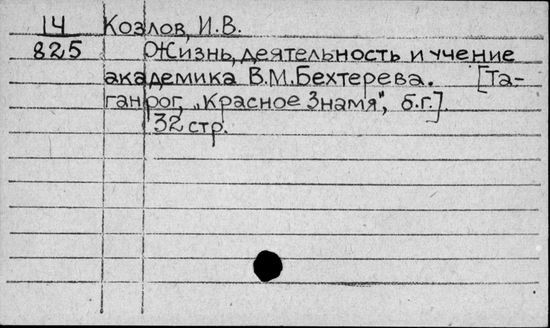 14 Козлов, И.В.
825 Жизнь, деятельность и учение
академика В.М. Бехтерева. [Та-
ганрог, „Красное Знамя", б.г.].
32 стр.